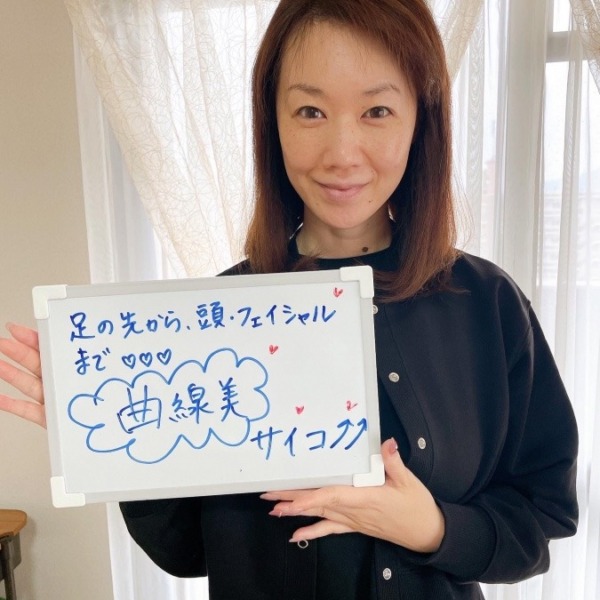 足の先から、頭・フェイシャル
まで♡♡♡
曲線美
サイコ⤴⤴